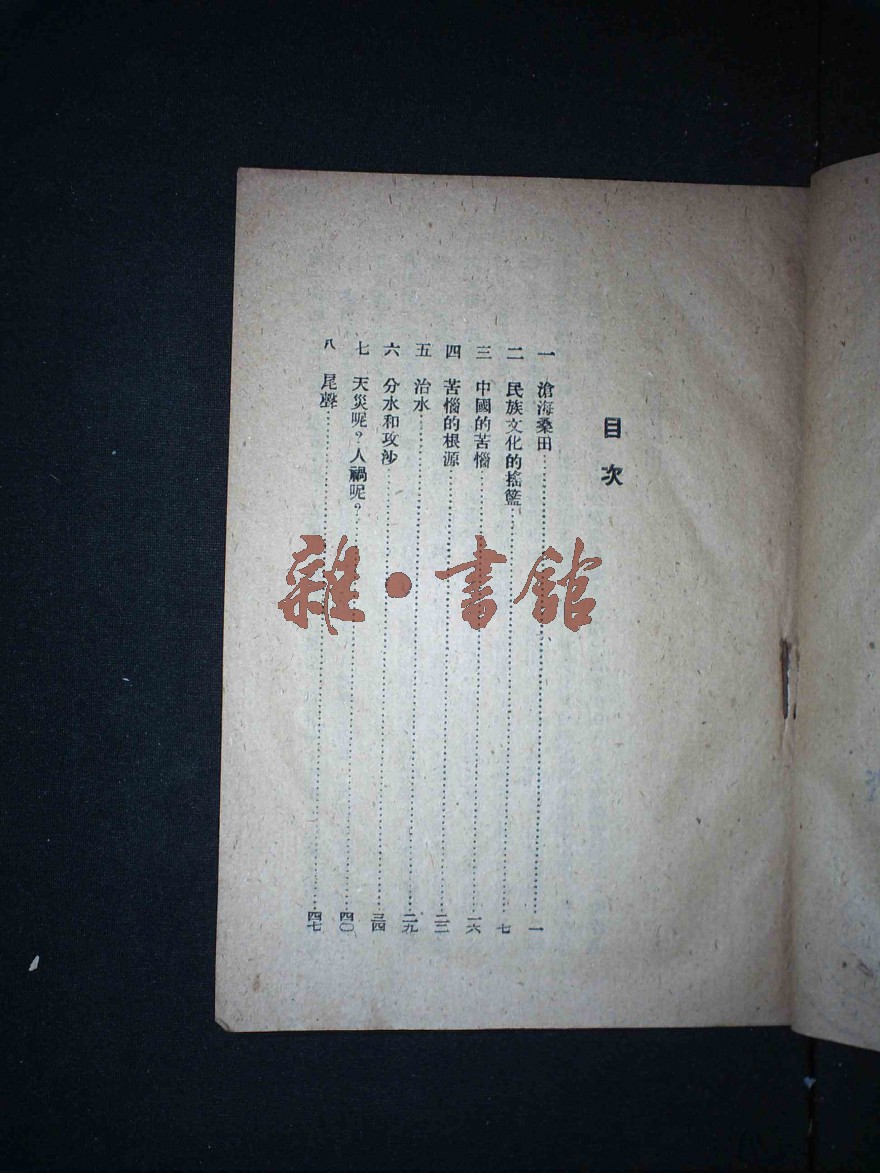 目次
一 滄海桑田……一
二 民族文化的搖籃……七
三 中國的苦惱……一六
四 苦惱的根源……二二
五 治水……二九
六 分水和攻沙……三四
七 天災呢？人禍呢？……四〇
八 尾聲……四七
雜·書館